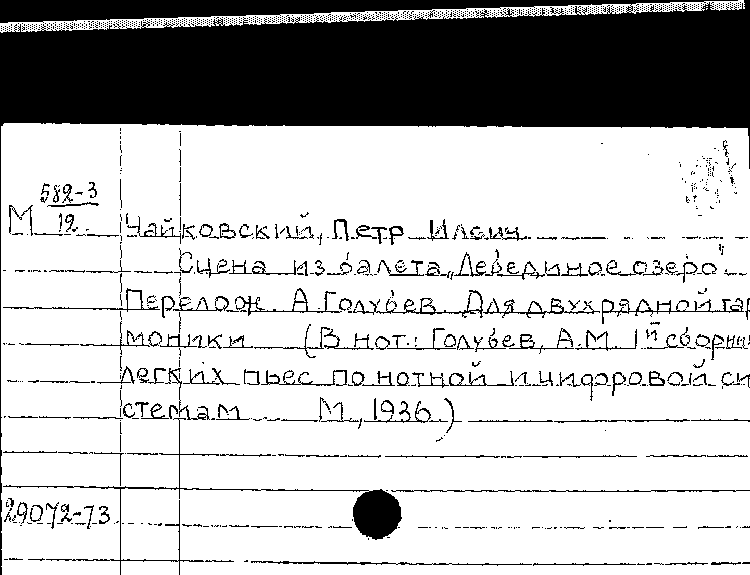 М 582-3
12. Чайковский, Петр Ильич
Сцена из балета „Лебединое озеро"
Перелож. А. Голубев. Для двухрядной гар
моники (В нот.: Голубев, А.М. 1й сборни
легких пьес по нотной и цифровой си
стемам М., 1936.)
29072-73